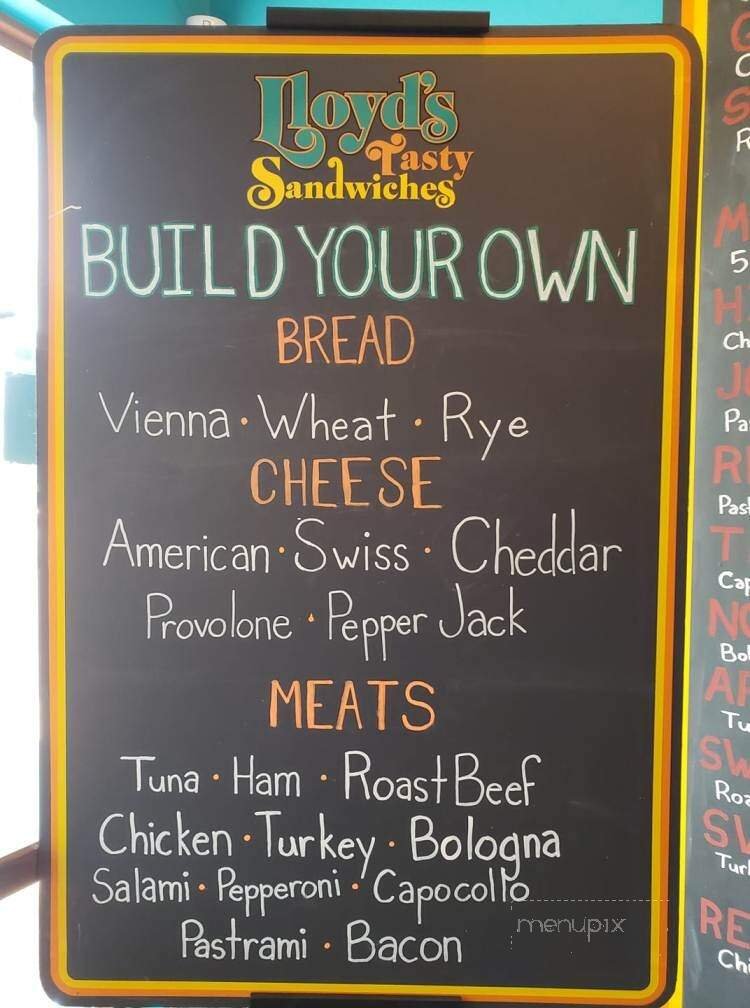 Lloyd's
Tasty
Sandwiches
BUILD YOUR OWN
BREAD
Vienna · Wheat · Rye
CHEESE
American · Swiss · Cheddar
Provolone · Pepper Jack
MEATS
Tuna · Ham · Roast Beef
Chicken · Turkey · Bologna
Salami · Pepperoni · Capocollo
Pastrami · Bacon
menupix